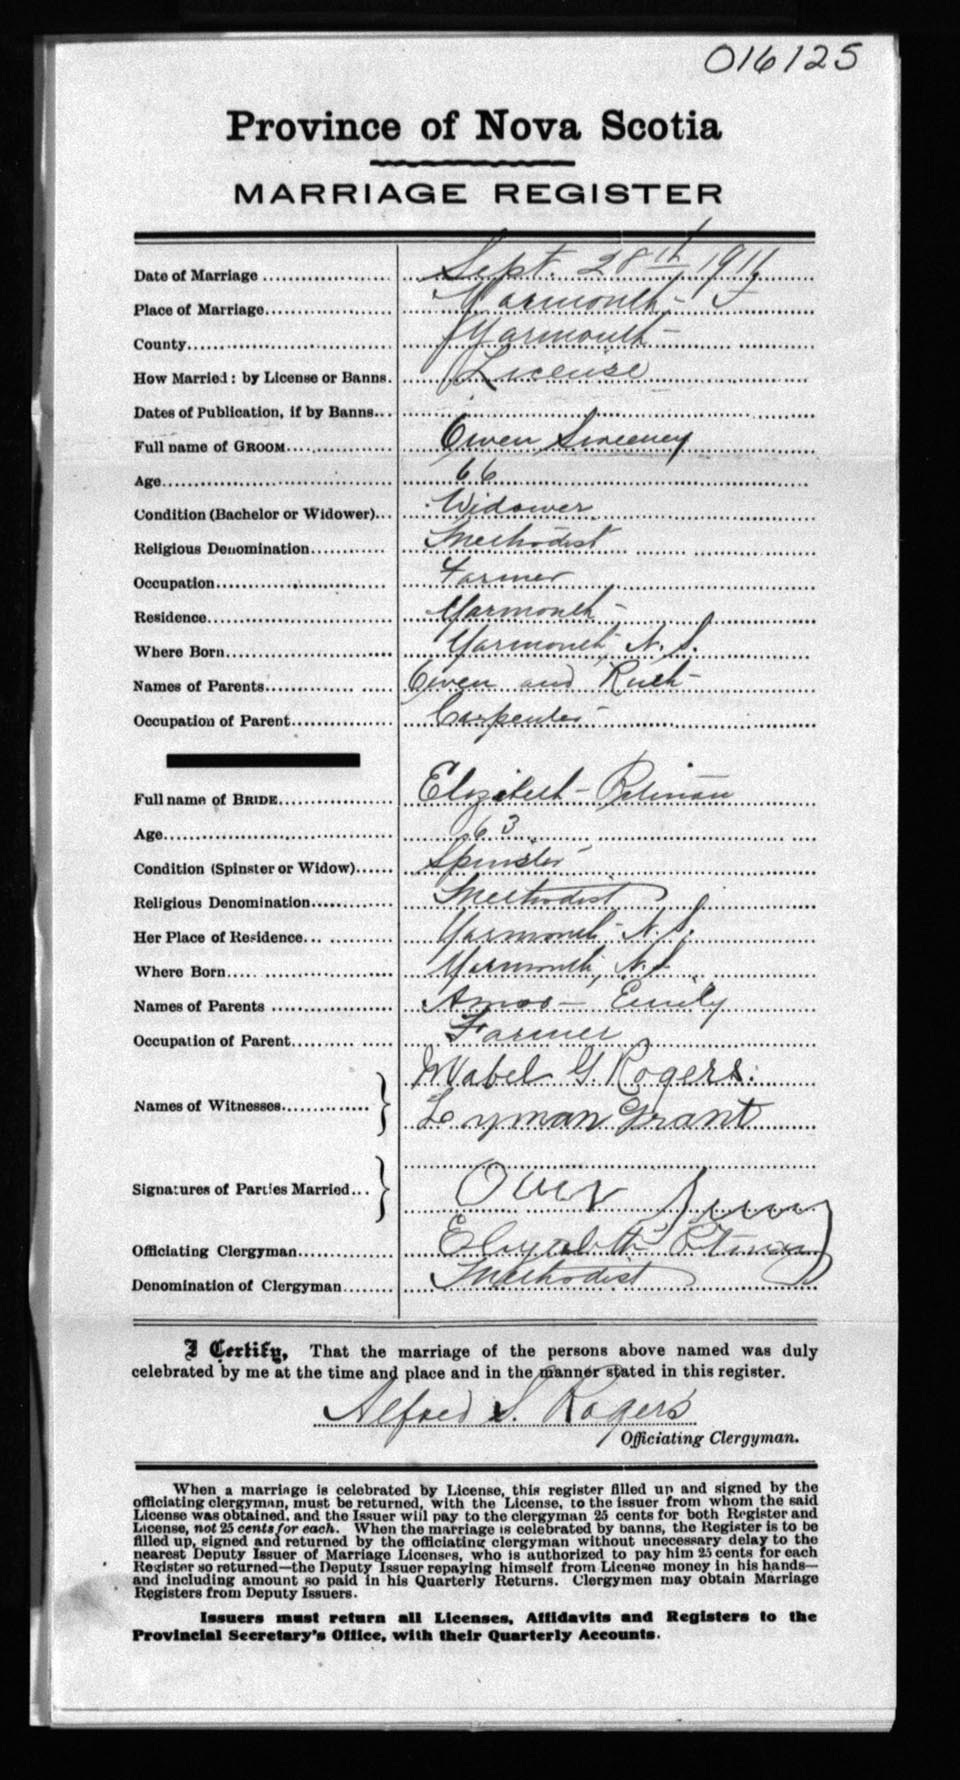 016125
Province of Nova Scotia
MARRIAGE REGISTER
Date of Marriage Sept. 28th, 1911
Place of Marriage Yarmouth
County Yarmouth
How Married: by License or Banns. License
Dates of Publication, if by Banns
Full name of GROOM Owen Sweeney
Age 66
Condition (Bachelor or Widower) Widower
Religious Denomination Methodist
Occupation Farmer
Residence Yarmouth
Where Born Yarmouth, N. S.
Names of Parents Owen and Ruth
Occupation of Parent Carpenter
Full name of BRIDE Elizabeth
Age 63
Condition (Spinster or Widow) Spinster
Religious Denomination Methodist
Her Place of Residence Yarmouth N. S.
Where Born Yarmouth, N.S.
Names of Parents Amos - Emily
Occupation of Parent Farmer
Mabel G. Rogers.
Names of Witnesses
Lyman Grant
Signatures of Parties Married Owen
Officiating Clergyman Elizabeth
Denomination of Clergyman Methodist
I Certify, That the marriage of the persons above named was duly
celebrated by me at the time and place and in the manner stated in this register.
Alfred S. Rogers
Officiating Clergyman.
When a marriage is celebrated by License, this register filled up and signed by the
officiating clergyman, must be returned, with the License, to the issuer from whom the said
License was obtained, and the Issuer will pay to the clergyman 25 cents for both Register and
License, not 25 cents for each. When the marriage is celebrated by banns, the Register is to be
filled up, signed and returned by the officiating clergyman without unnecessary delay to the
nearest Deputy Issuer of Marriage Licenses, who is authorized to pay him 25 cents for each
Register so returned—the Deputy Issuer repaying himself from License money in his hands—
and including amount so paid in his Quarterly Returns. Clergymen may obtain Marriage
Registers from Deputy Issuers.
Issuers must return all Licenses, Affidavits and Registers to the
Provincial Secretary's Office, with their Quarterly Accounts.